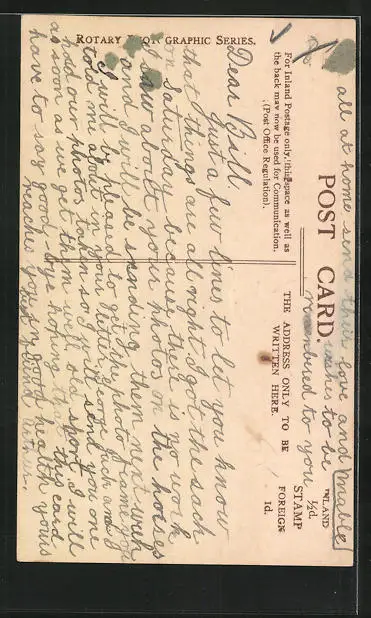 ROTARY PHOTOGRAPHIC SERIES.
POST CARD.
For Inland Postage only, this space as well as
the back may now be used for Communication.
(Post Office Regulation).
THE ADDRESS ONLY TO BE
WRITTEN HERE.
INLAND
½d.
STAMP
FOREIGN
1d.
all at home send their love and
wishes to be
remembred to you
Dear Bill
Just a few lines to let you know
that things are all right I got the sack
on Saturday because there is no work
I saw about your photos on the horses
and I will be sending them next week
I will be pleased to get the photo frame you
told me about in your letter George Jack and I
hold our photos taken so I will send you one
as soon as we get them well old sport I will
have to say good-bye hoping that this card
reaches you in good health yours